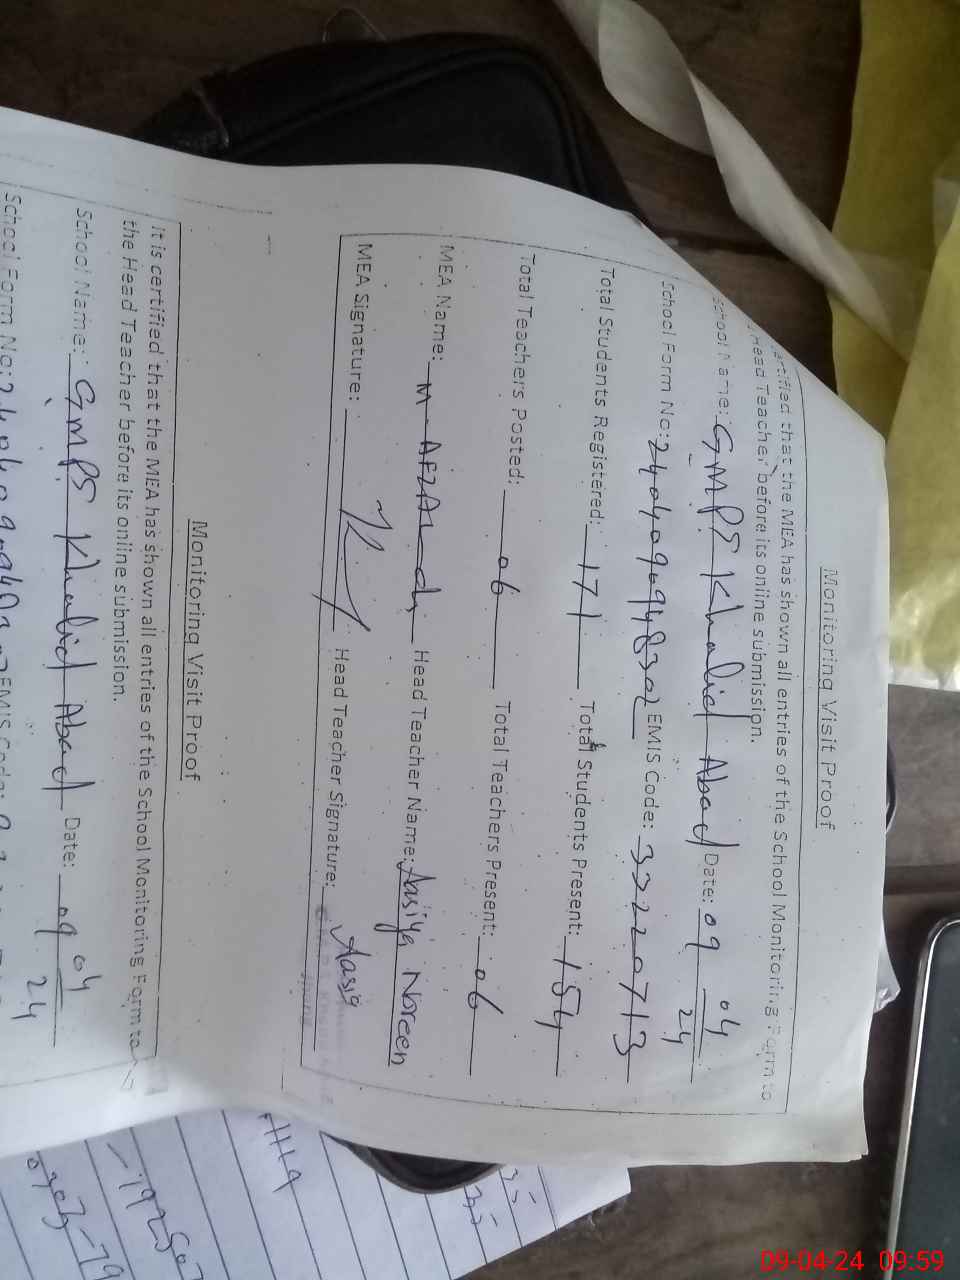 Monitoring Visit Proof
ertified that the MEA has shown all entries of the School Monitoring Form to
Head Teacher before its online submission.
School Name: GMPS Khalid Abad Date: 09 04 24
School Form No: 2404090948302 EMIS Code: 33220713
Total Students Registered: 171 Total Students Present: 154
Total Teachers Posted: 06 Total Teachers Present: 06
MEA Name: M-AFZAL Head Teacher Name: Aasiya Noreen
MEA Signature: Head Teacher Signature: Aasia
Monitoring Visit Proof
It is certified that the MEA has shown all entries of the School Monitoring Form to
the Head Teacher before its online submission.
School Name: GMPS Khalid Abad Date: 09 04 24
School Form No: EMIS Code:
09-04-24 09:59